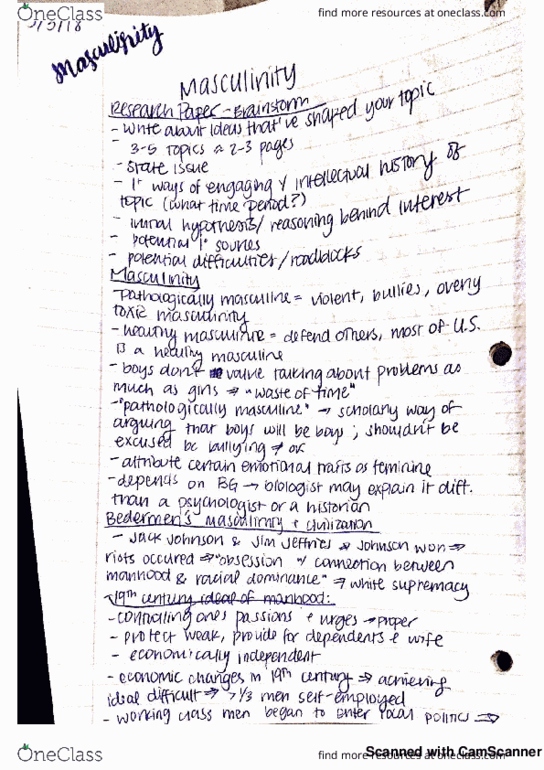 OneClass
find more resources at oneclass.com
3/5/18
Masculinity
Masculinity
Research Paper - Brainstorm
- write about ideas that've shaped your topic
- 3-5 topics 2-3 pages
- state issue
- 1° ways of engaging w/ intellectual history of
topic (what time period?)
- initial hypothesis/ reasoning behind interest
- potential 1° sources
- potential difficulties/roadblocks
Masculinity
- Pathologically masculine = violent, bullies, overly
toxic masculinity
- healthy masculine = defend others, most of U.S.
is a healthy masculine
- boys don't value talking about problems as
much as girls ⇒ "waste of time"
- "pathologically masculine" → scholarly way of
arguing that boys will be boys; shouldn't be
excused bc bullying ≠ ok
- attribute certain emotional traits as feminine
- depends on BG → biologist may explain it diff.
than a psychologist or a historian
Bedermen's masculinity + civilization
- Jack Johnson & Jim Jeffries ⇒ Johnson won ⇒
riots occured ⇒ "obsession w/ connection between
manhood & racial dominance" ⇒ white supremacy
19th century ideal of manhood:
- controlling ones passions + urges → proper
- protect weak, provide for dependents & wife
- economically independent
- economic changes in 19th century ⇒ achieving
ideal difficult ⇒ > 1/3 men self-employed
- working class men began to enter local politics ⇒
OneClass
find more resources at oneclass.com
Scanned with CamScanner